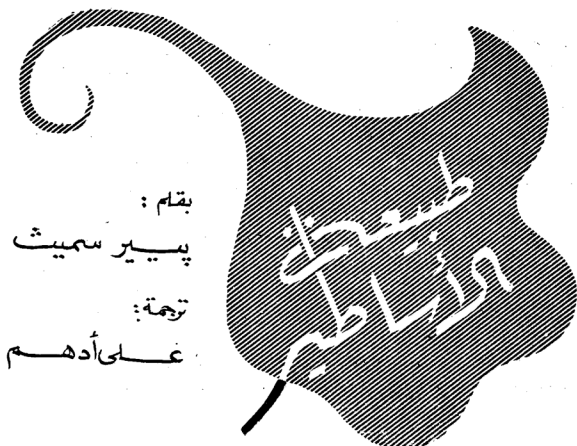 طبيعة
الأساطير
بقلم :
پيير سميث
ترجمة :
على أدهم